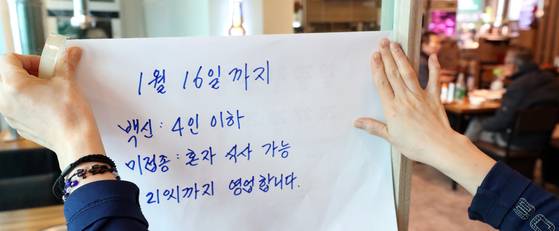 1월 16일까지
백신 : 4인 이하
미접종 : 혼자 식사 가능
21시까지 영업합니다.